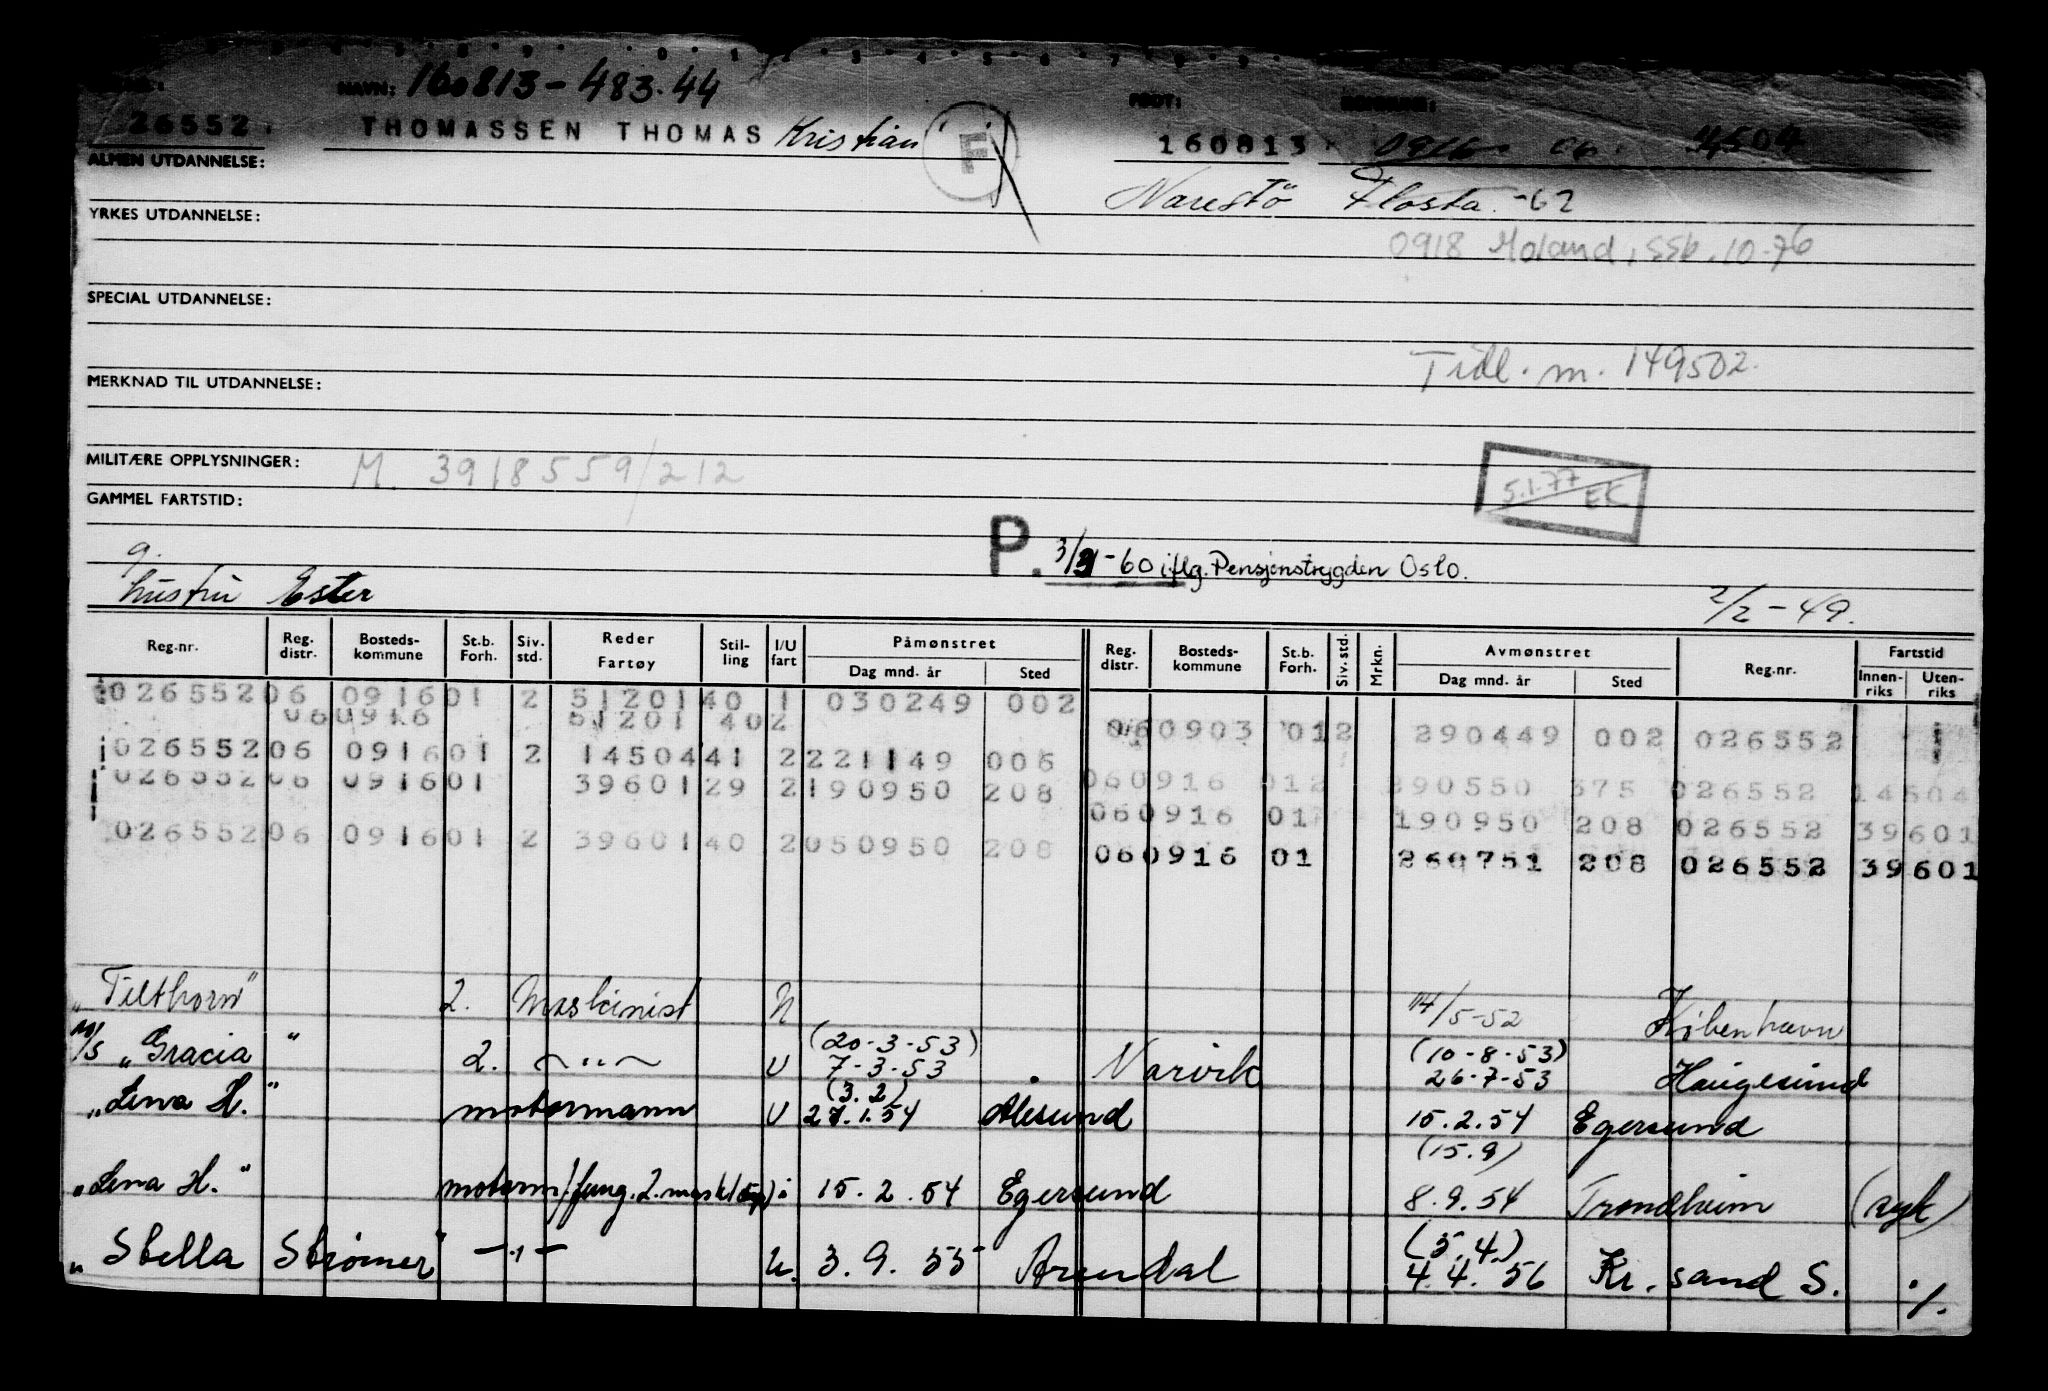 NAVN: 160813-483.44 FØDT:
26552. THOMASSEN THOMAS Kristian F 160813. 0916. 06. 4504
ALMEN UTDANNELSE:
Narestö Flosta -62
YRKES UTDANNELSE:
0918 Moland, SSB. 10-76
SPECIAL UTDANNELSE:
Tidl. m. 149502.
MERKNAD TIL UTDANNELSE:
MILITÆRE OPPLYSNINGER: M. 3918559/212
5.1.77 EK
GAMMEL FARTSTID:
P. 3/3-60 iflg. Pensjonstrygden Oslo.
g.
hustru Ester 2/2-49.
Reg.nr. Reg. distr. Bosteds-kommune St.b. Forh. Siv. std. Reder Fartøy Stil-ling I/U fart Påmønstret Dag mnd. år Sted Reg. distr. Bosteds-kommune St.b. Forh. Siv. std. Mrkn. Avmønstret Dag mnd. år Sted Reg.nr. Fartstid Innen-riks Uten-riks
026552 06 0916 01 2 51201 40 1 030249 002
06 0916 51201 40 2 06 0903 01 2 290449 002 026552
026552 06 0916 01 2 14504 41 2 221149 006
026552 06 0916 01 39601 29 2 190950 208 06 0916 01 2 290550 575 026552 14504
06 0916 01 190950 208 026552 39601
026552 06 0916 01 2 39601 40 2 050950 208
06 0916 01 260751 208 026552 39601
"Tilthorn" 2. Maskinist U 14/5-52 København
M/S "Gracia" 2. -"- U (20-3-53) 7-3-53 Narvik (10-8-53) 26-7-53 Haugesund
"Lena H." motormann U (3.2) 27.1.54 Ålesund 15.2.54 Egersund
"Lena H." motorm/fung. 2. mask (disp) i 15.2.54 Egersund (15.9) 8.9.54 Trondheim (syk)
"Stella Strømer" -"- U. 3.9.55 Arendal (5.4.) 4.4.56 Kr.sand S. ./.